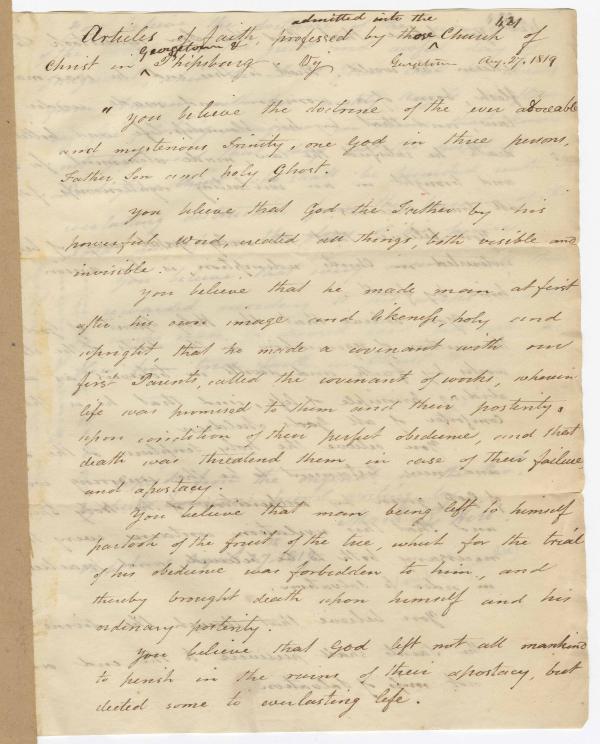 admitted into the 421
Articles of faith, professed by those ^ Church of
Georgetown &
Christ in ^ Phipsburg. By Georgetown Aug. 27. 1819
" You believe the doctrine of the ever adoreable
and mysterious Trinity, one God in three persons,
Father, Son and holy Ghost.
You believe that God the Father by his
powerful word, created all things, both visible and
invisible.
You believe that he made man at first
after his own image and likeness, holy and
upright, that he made a covenant with our
first Parents, called the covenant of works, wherein
life was promised to them and their posterity,
upon condition of their perfect obedience, and that
death was threatend them in case of their failure,
and apostacy.
You believe that man being left to himself
partook of the fruit of the tree, which for the trial
of his obedience was forbidden to him, and
thereby brought death upon himself and his
ordinary posterity.
You believe that God left not all mankind
to perish in the ruins of their apostacy, but
elected some to everlasting life.